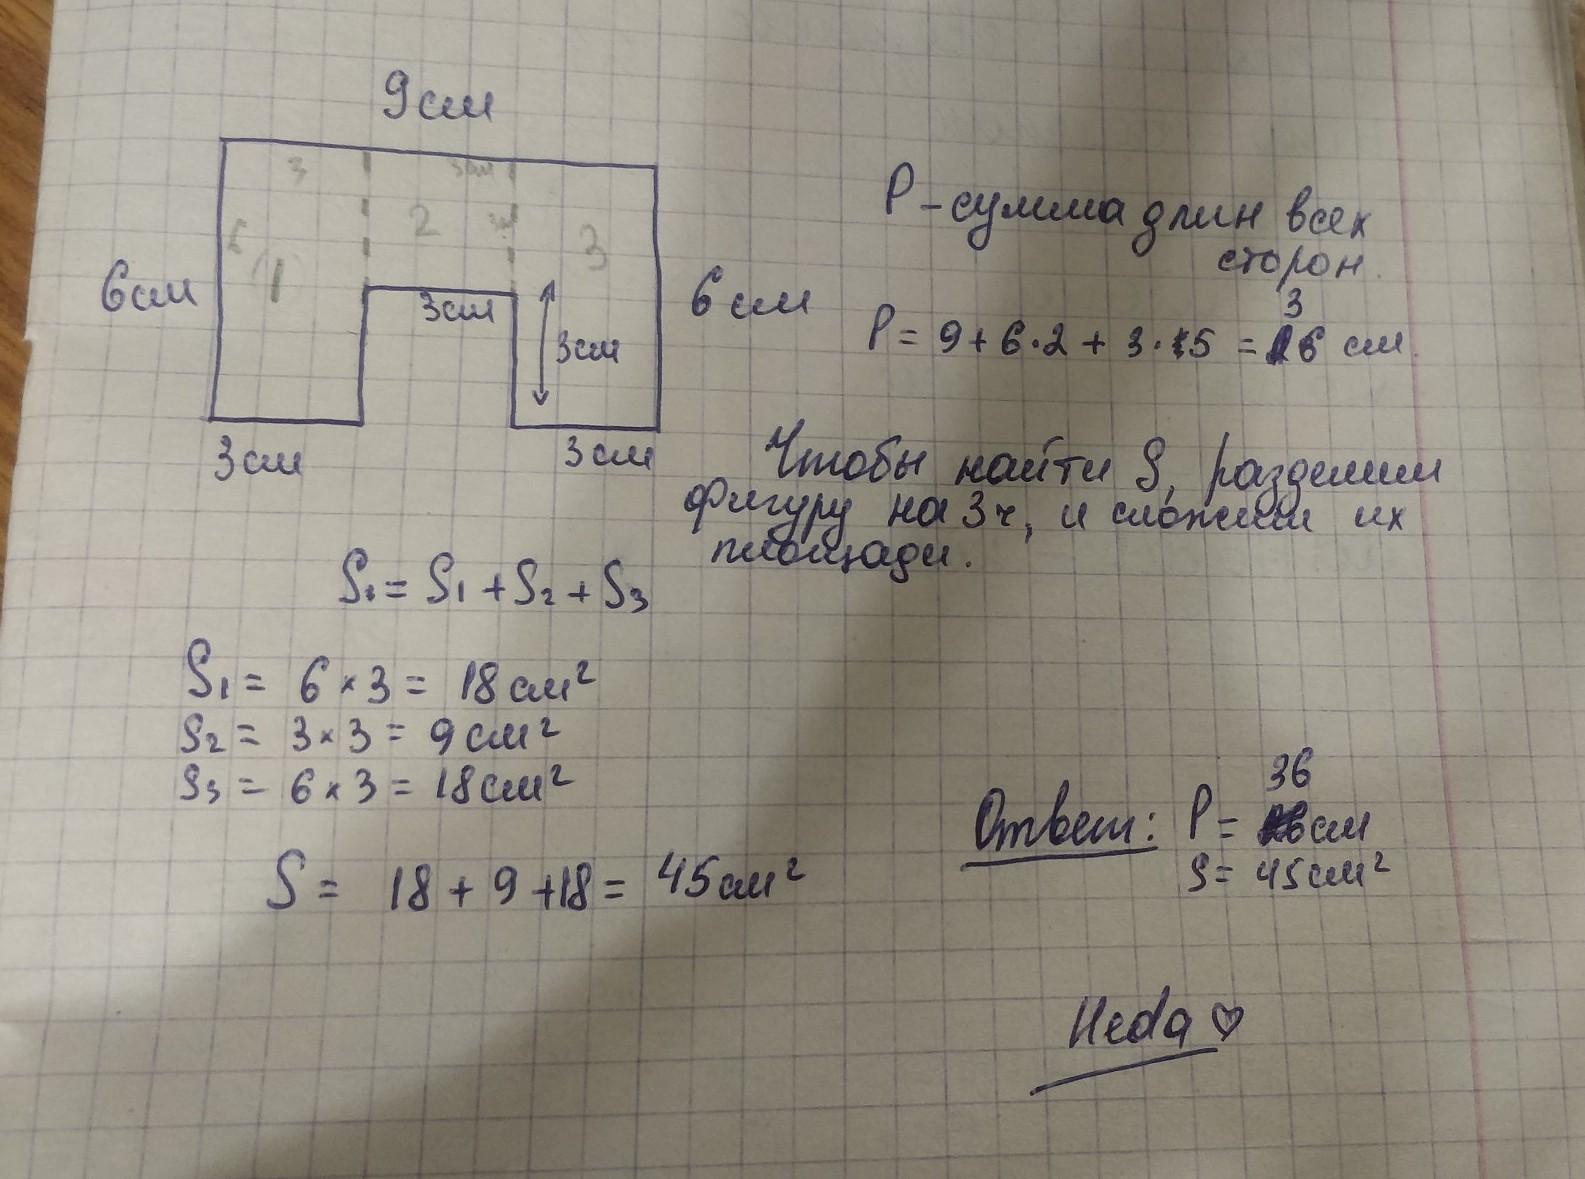 9см
3
3см
2
3
1
6см
6см
3см
3см
3см
3см
P - сумма длин всех
сторон.
3
P = 9 + 6 · 2 + 3 · 5 = 6 см
Чтобы найти S, разделим
фигуру на 3ч, и сложим их
площади.
S = S1 + S2 + S3
S1 = 6 × 3 = 18 см²
S2 = 3 × 3 = 9 см²
S3 = 6 × 3 = 18 см²
S = 18 + 9 + 18 = 45 см²
36
Ответ: P = см
S = 45 см²
Heda ♡